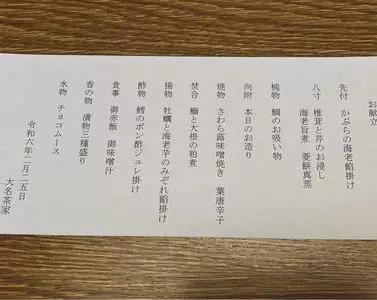 お献立
先付　かぶらの海老餡掛け
八寸　椎茸と芹のお浸し
海老旨煮　菱餅真蒸
椀物　鯛のお吸い物
向附　本日のお造り
焼物　さわら蕗味噌焼き　葉唐辛子
焚合　鰤と大根の粕煮
揚物　牡蠣と海老芋のみぞれ餡掛け
酢物　鱈のポン酢ジュレ掛け
食事　御赤飯　御味噌汁
香の物　漬物三種盛り
水物　チョコムース
令和六年二月二五日
大名茶家